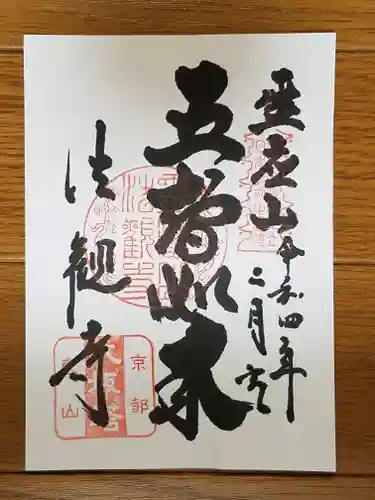 霊応山
令和四年
二月六
五智如来
法観寺
京都
八坂塔
東山